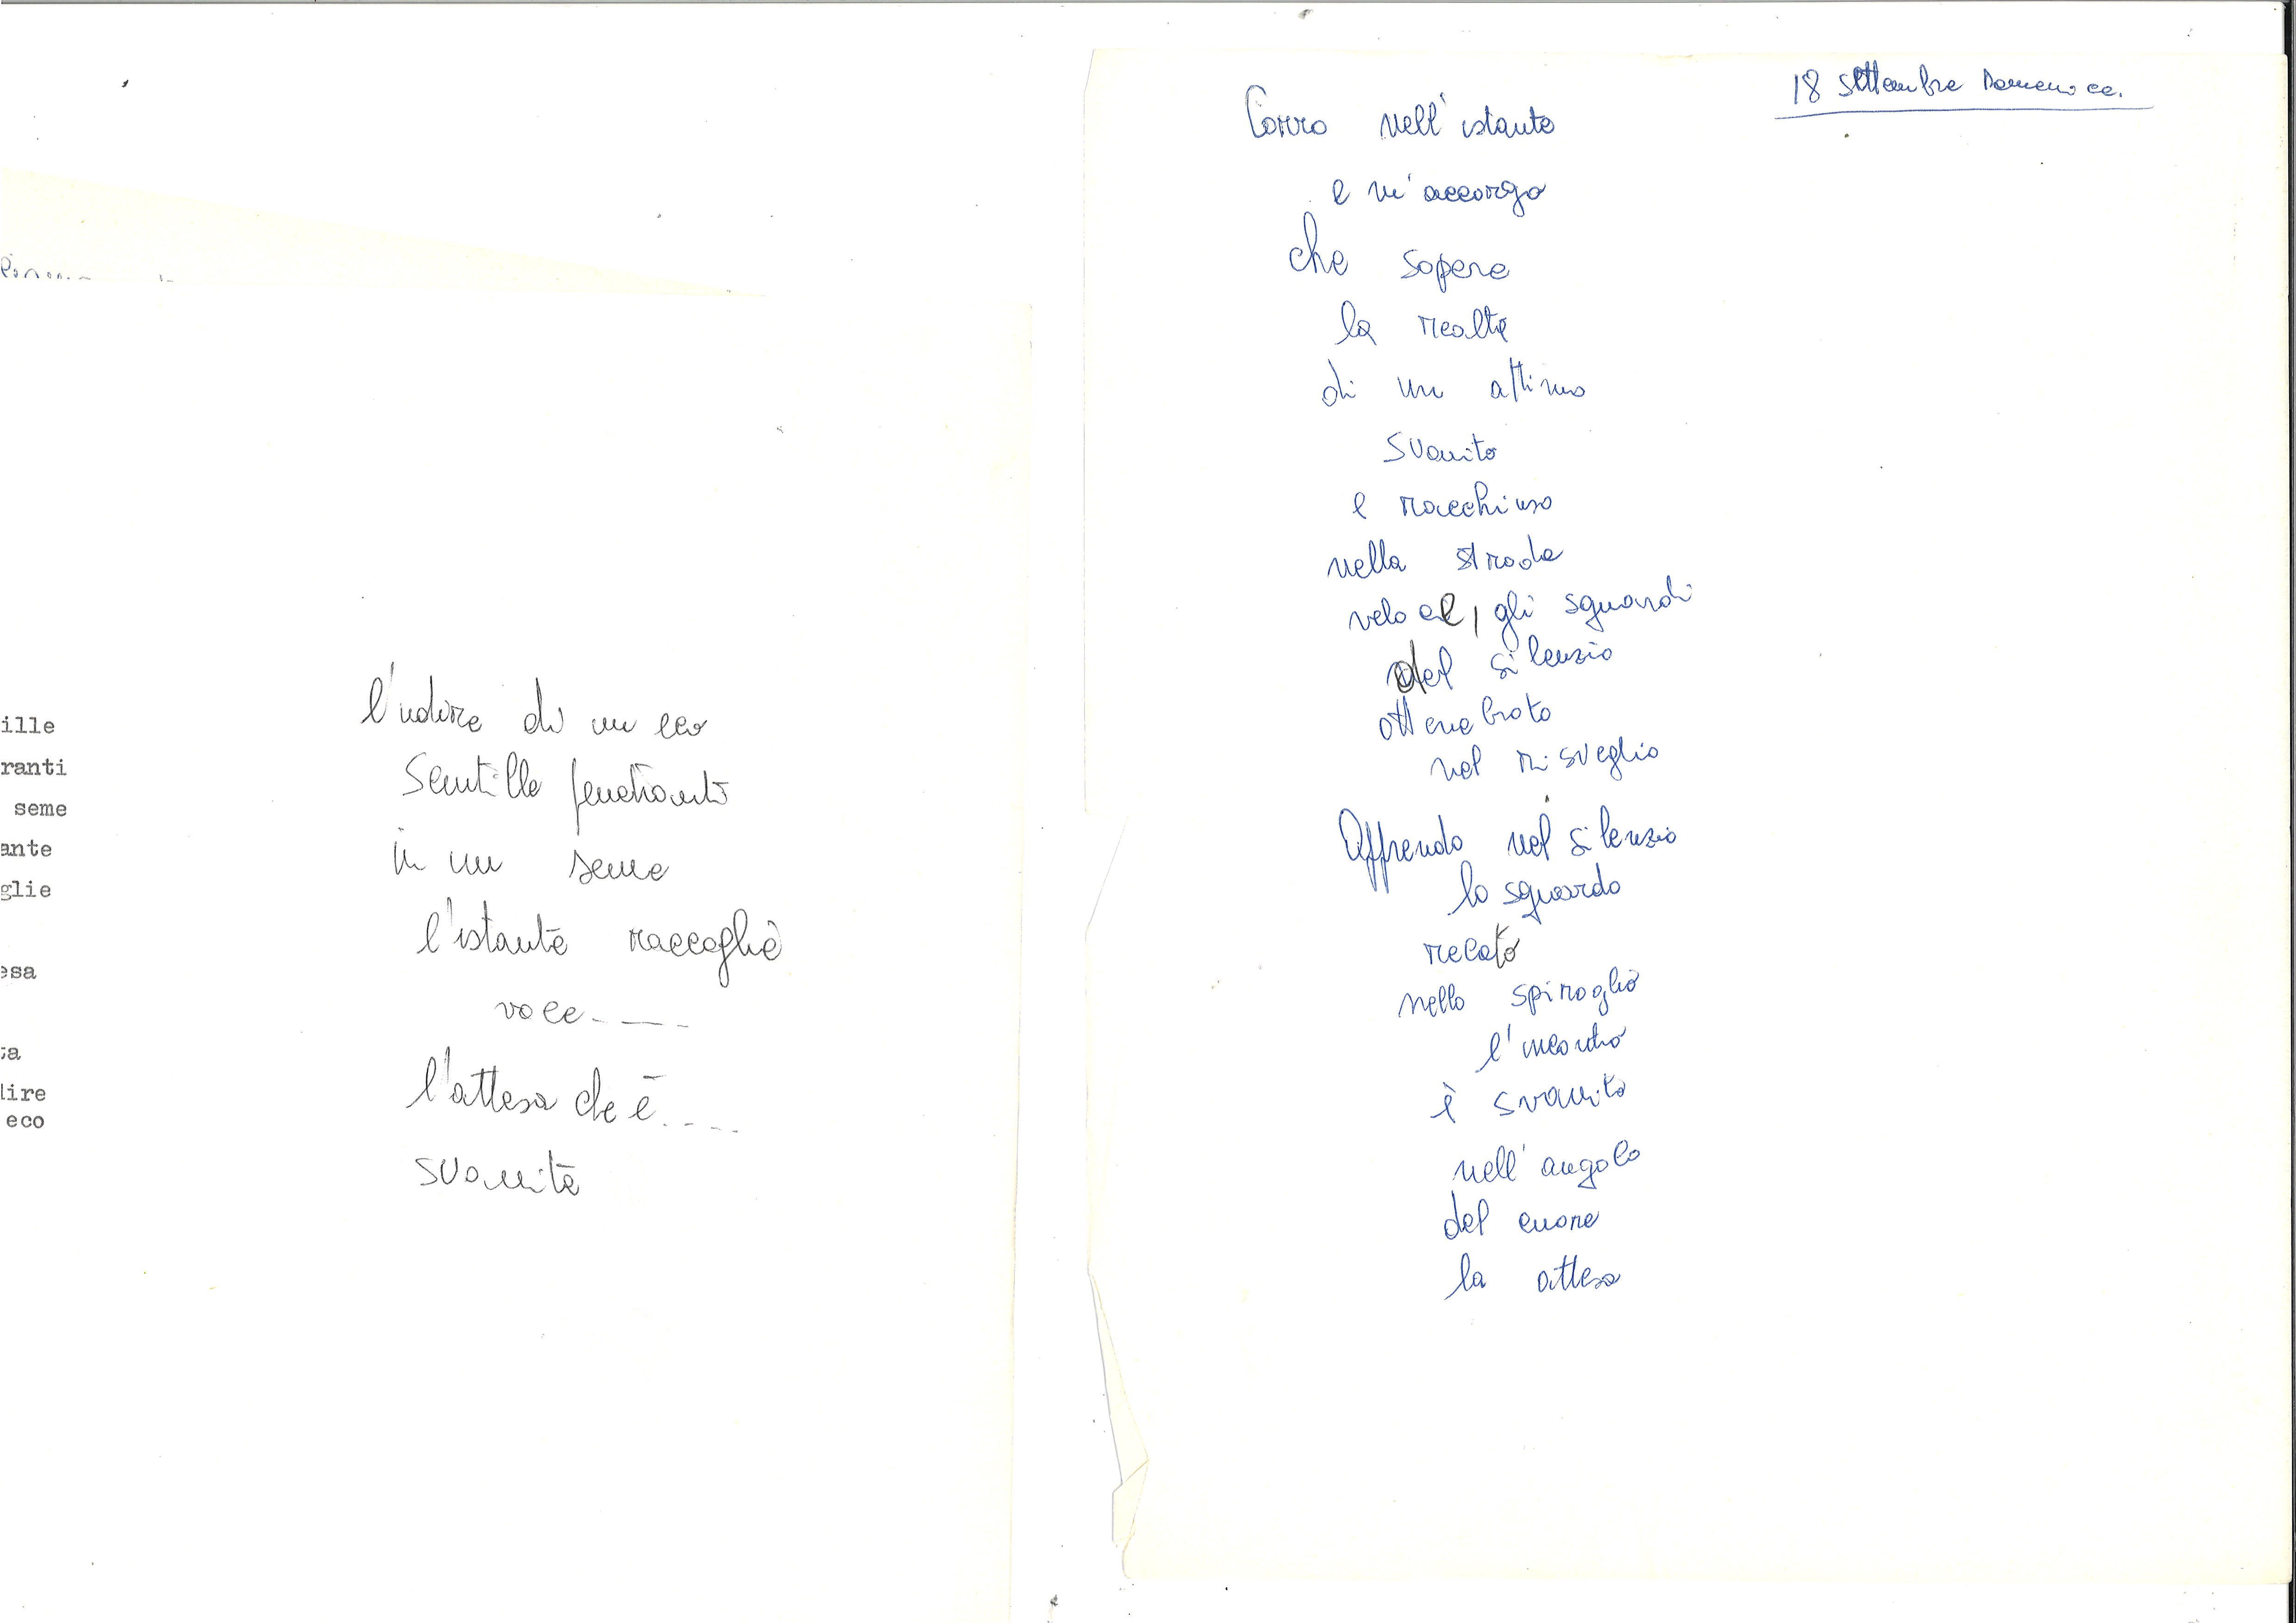 ille
ranti
seme
ante
glie
esa
lire
eco
l'udire di un eco
Scintille penetranti
in un seme
l'istante raccoglie
voce-----
l'attesa che è.....
svanita
18 settembre Domenica.
Corro nell'istante
e m'accorgo
che sapere
la realtà
di un attimo
svanito
e racchiuso
nella strada
veloce, gli sguardi
del silenzio
ottenebrato
nel risveglio
Apprendo nel silenzio
lo sguardo
recato
nello spiraglio
l'incontro
è svanito
nell'angolo
del cuore
la attesa